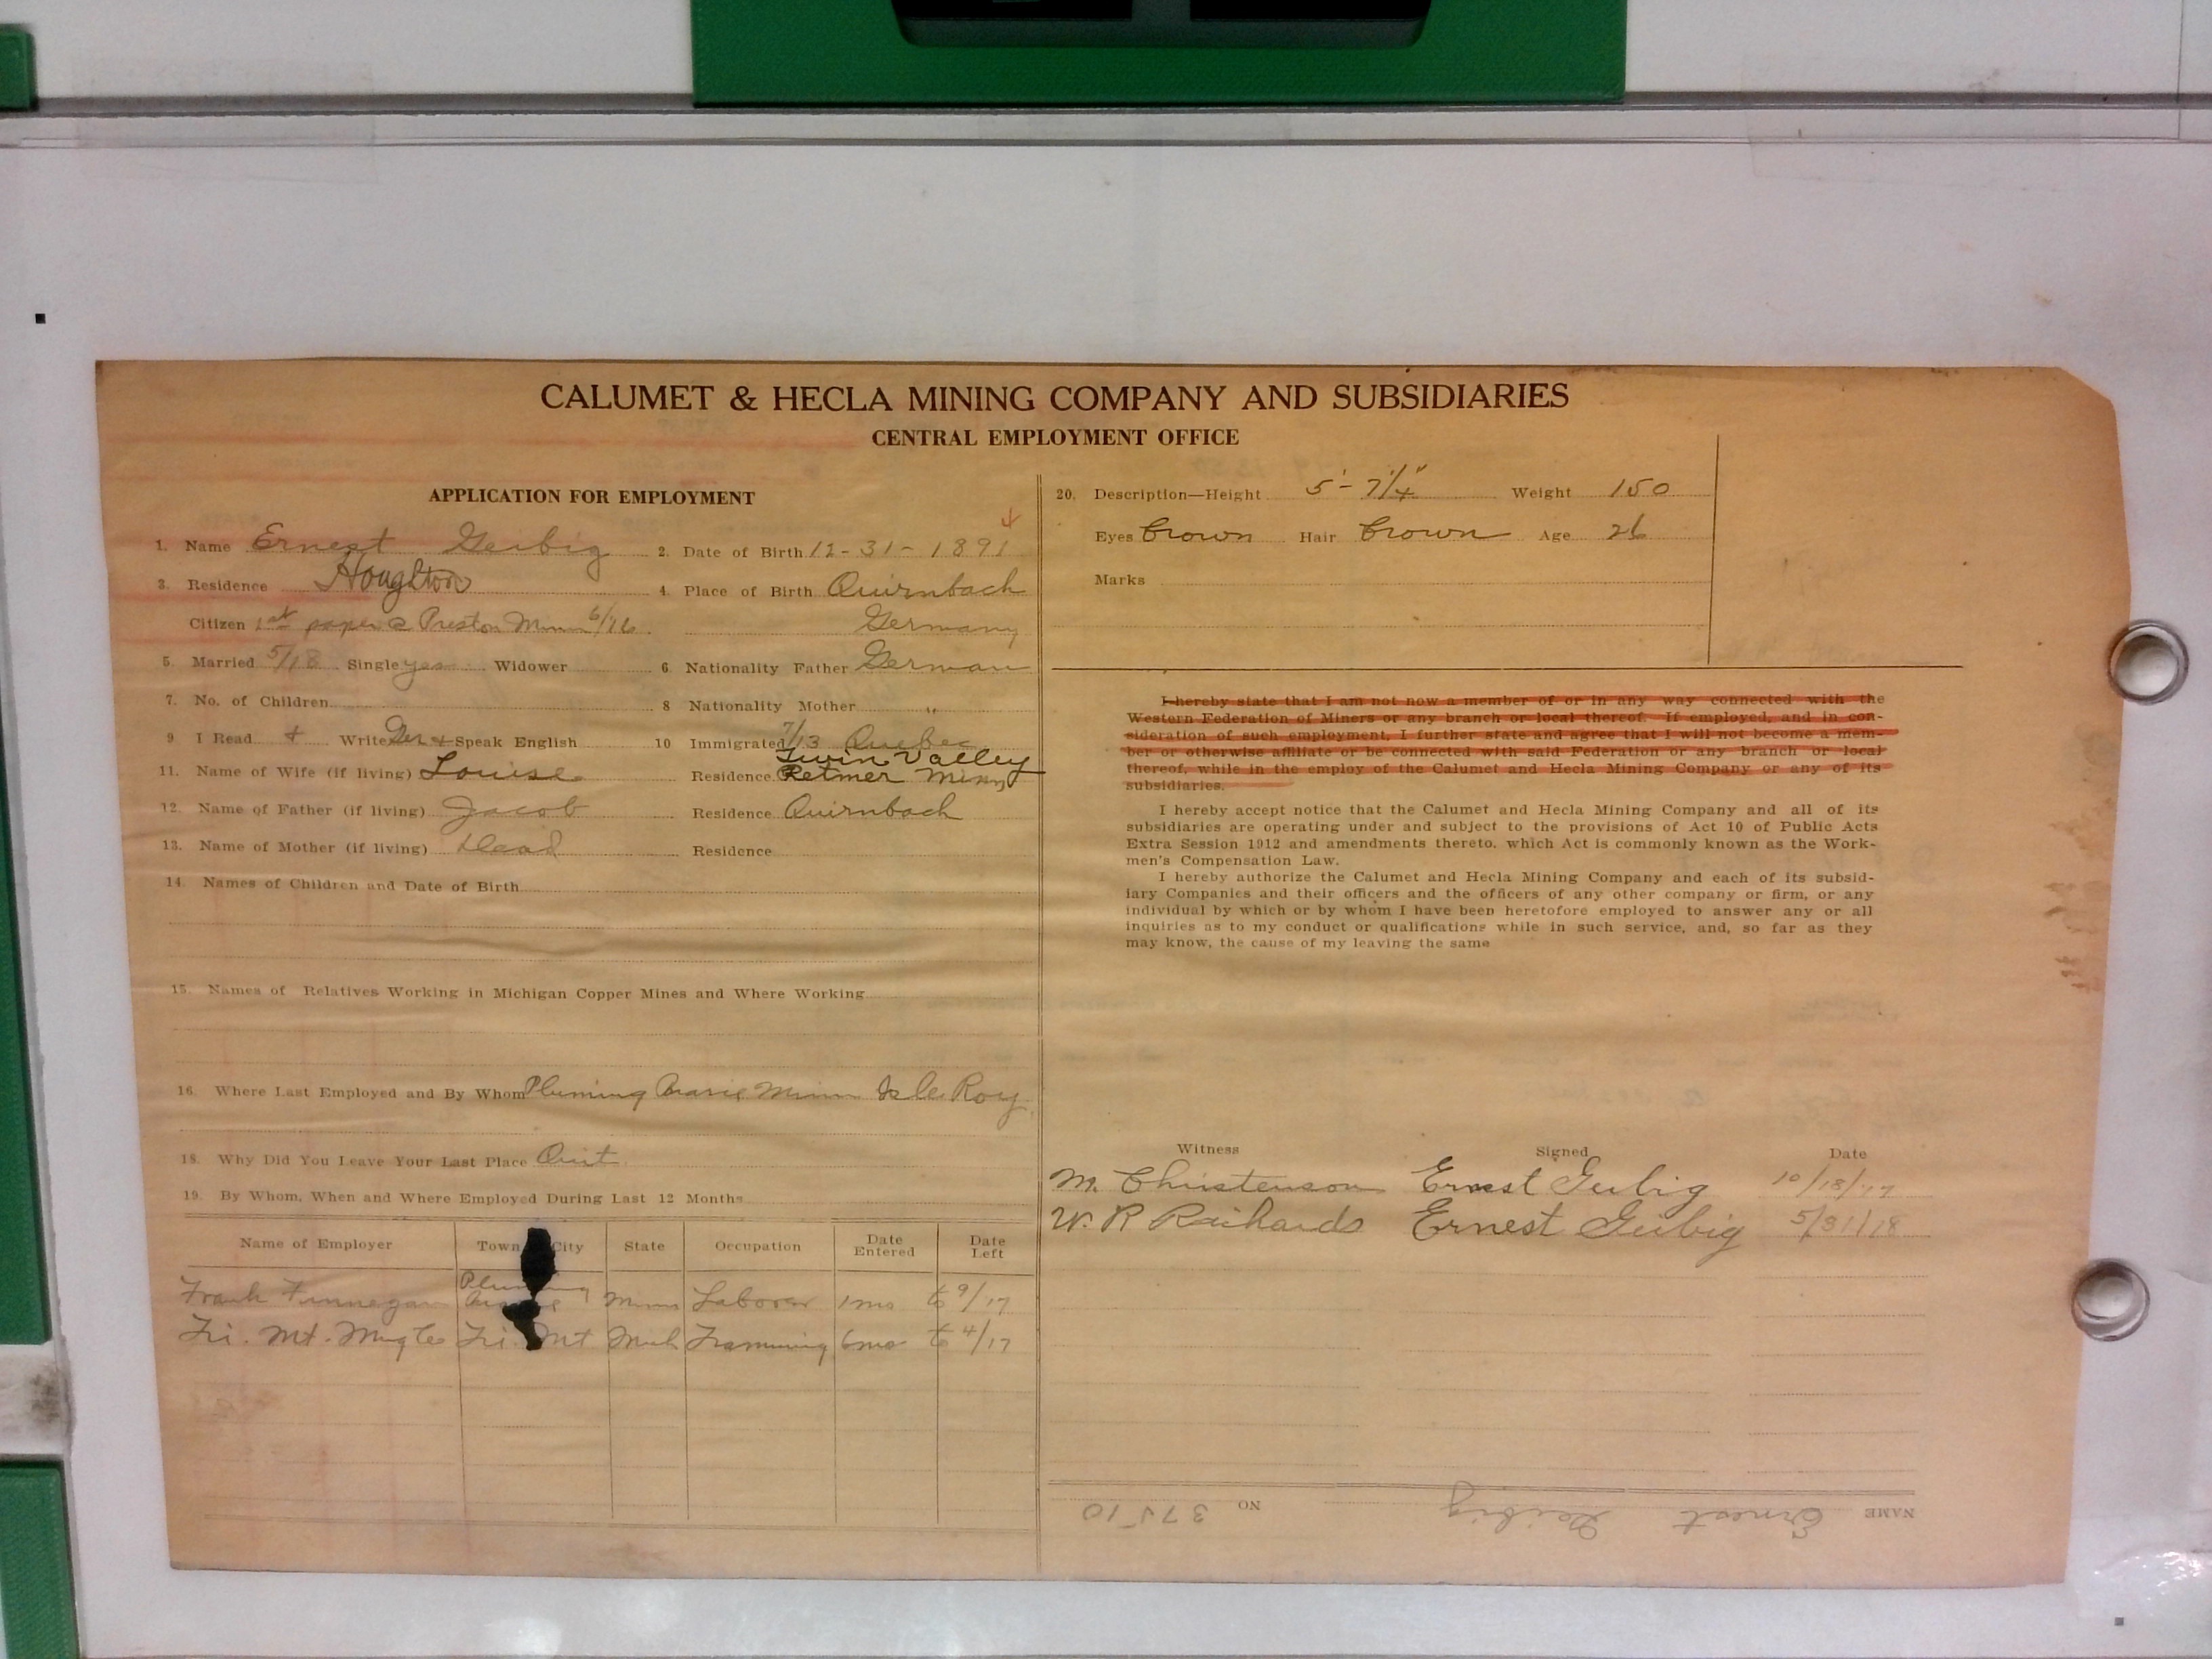 CALUMET & HECLA MINING COMPANY AND SUBSIDIARIES
CENTRAL EMPLOYMENT OFFICE
APPLICATION FOR EMPLOYMENT
1. Name Ernest Geibig 2. Date of Birth 12-31-1891 4
3. Residence Houghton 4. Place of Birth Quirnbach
Citizen 1st paper @ Preston Minn 6/16 Germany
5. Married 5/18 Single yes Widower 6. Nationality Father German
7. No. of Children 8 Nationality Mother "
9 I Read + Write Ger + Speak English 10 Immigrated 7/13 Quebec
Twin Valley
11. Name of Wife (if living) Louise Residence Minn
12. Name of Father (if living) Jacob Residence Quirnbach
13. Name of Mother (if living) Dead Residence
14. Names of Children and Date of Birth
15. Names of Relatives Working in Michigan Copper Mines and Where Working
16. Where Last Employed and By Whom Minn
18. Why Did You Leave Your Last Place Quit
19. By Whom, When and Where Employed During Last 12 Months
Name of Employer Town City State Occupation Date Entered Date Left
Frank Finnegan Minn Laborer 1mo to 9/17
Tri. Mt. Tri. Mt Mich Tramming 6mo to 4/17
20. Description—Height 5'-7 1/4" Weight 150
Eyes brown Hair brown Age 26
Marks
I hereby state that I am not now a member of or in any way connected with the
Western Federation of Miners or any branch or local thereof. If employed, and in con-
sideration of such employment, I further state and agree that I will not become a mem-
ber or otherwise affiliate or be connected with said Federation or any branch or local
thereof, while in the employ of the Calumet and Hecla Mining Company or any of its
subsidiaries.
I hereby accept notice that the Calumet and Hecla Mining Company and all of its
subsidiaries are operating under and subject to the provisions of Act 10 of Public Acts
Extra Session 1912 and amendments thereto, which Act is commonly known as the Work-
men's Compensation Law.
I hereby authorize the Calumet and Hecla Mining Company and each of its subsid-
iary Companies and their officers and the officers of any other company or firm, or any
individual by which or by whom I have been heretofore employed to answer any or all
inquiries as to my conduct or qualifications while in such service, and, so far as they
may know, the cause of my leaving the same
Witness Signed Date
M. Christenson Ernst Geibig 10/18/17
W. R Richards Ernest Geibig 5/31/18
NAME Ernest Geibig NO 37510